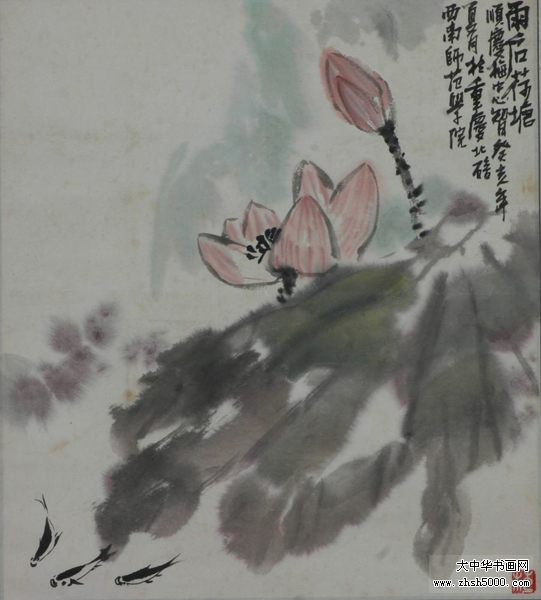 雨后荷塘
順慶楊忠賢癸亥年
夏月於重慶北碚
西南師范學院
大中华书画网
www.zhsh5000.com